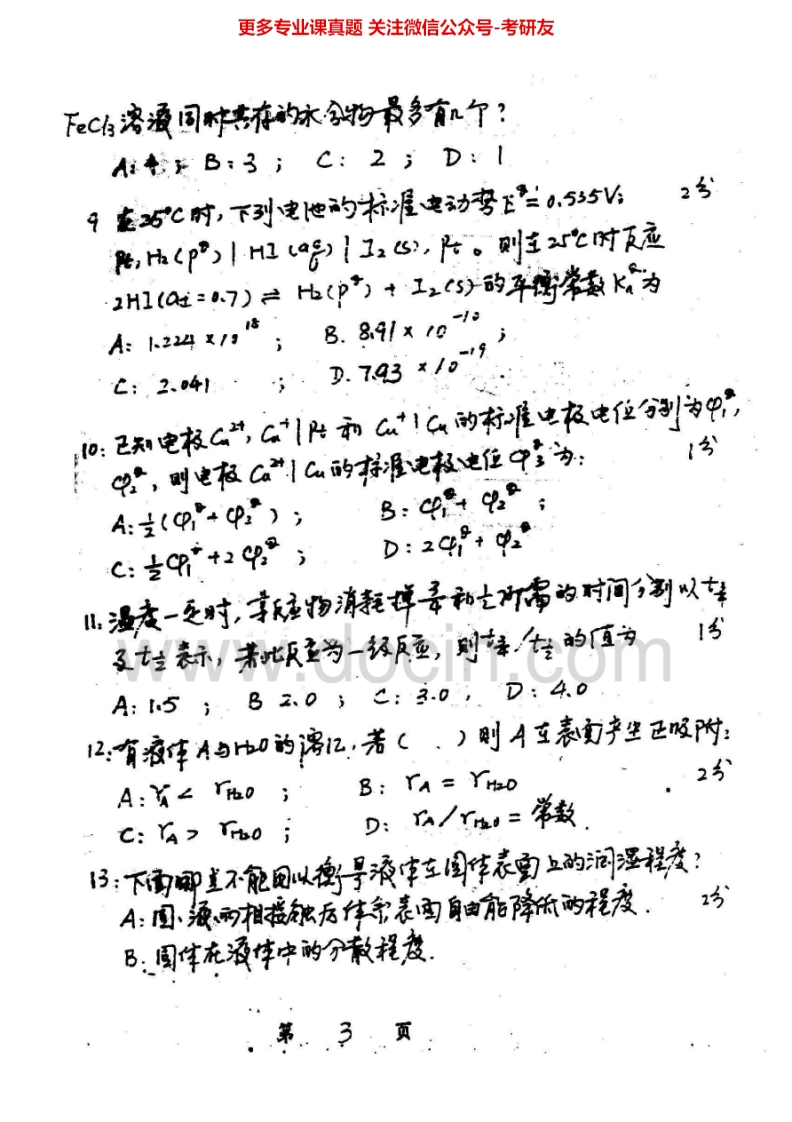 更多专业课真题 关注微信公众号-考研友
FeCl3溶液同时共存的水合物最多有几个?
A: 4 ; B: 3 ; C: 2 ; D: 1
9 在25°C时, 下列电池的标准电动势E^θ = 0.535V: 2分
Pt, H2(p^θ) | HI(aq) | I2(s), Pt。则在25°C时反应
2HI(a± = 0.7) ⇌ H2(p^θ) + I2(s)的平衡常数Ka^θ为
A: 1.224 × 10^18 ; B. 8.91 × 10^-10 ;
C: 2.041 ; D. 7.93 × 10^-19.
10: 已知电极Cu^2+, Cu^+ | Pt 和 Cu^+ | Cu的标准电极电位分别为φ1^θ,
φ2^θ, 则电极Cu^2+ | Cu的标准电极电位φ3^θ为: 1分
A: 1/2(φ1^θ + φ2^θ) ; B: φ1^θ + φ2^θ ;
C: 1/2φ1^θ + 2φ2^θ ; D: 2φ1^θ + φ2^θ
11. 温度一定时, 某反应物消耗掉3/4和1/2所需的时间分别以t3/4
及t1/2表示, 若此反应为一级反应, 则t3/4/t1/2的值为 1分
A: 1.5 ; B 2.0 ; C: 3.0 , D: 4.0
www.docin.com
12: 有液体A与H2O的混区, 若( )则A在表面产生正吸附: 2分
A: γA < γH2O ; B: γA = γH2O
C: γA > γH2O ; D: γA/γH2O = 常数.
13: 下面哪些不能用以衡量液体在固体表面上的润湿程度?
A: 固、液两相接触后体系表面自由能降低的程度. 2分
B: 固体在液体中的分散程度.
第 3 页